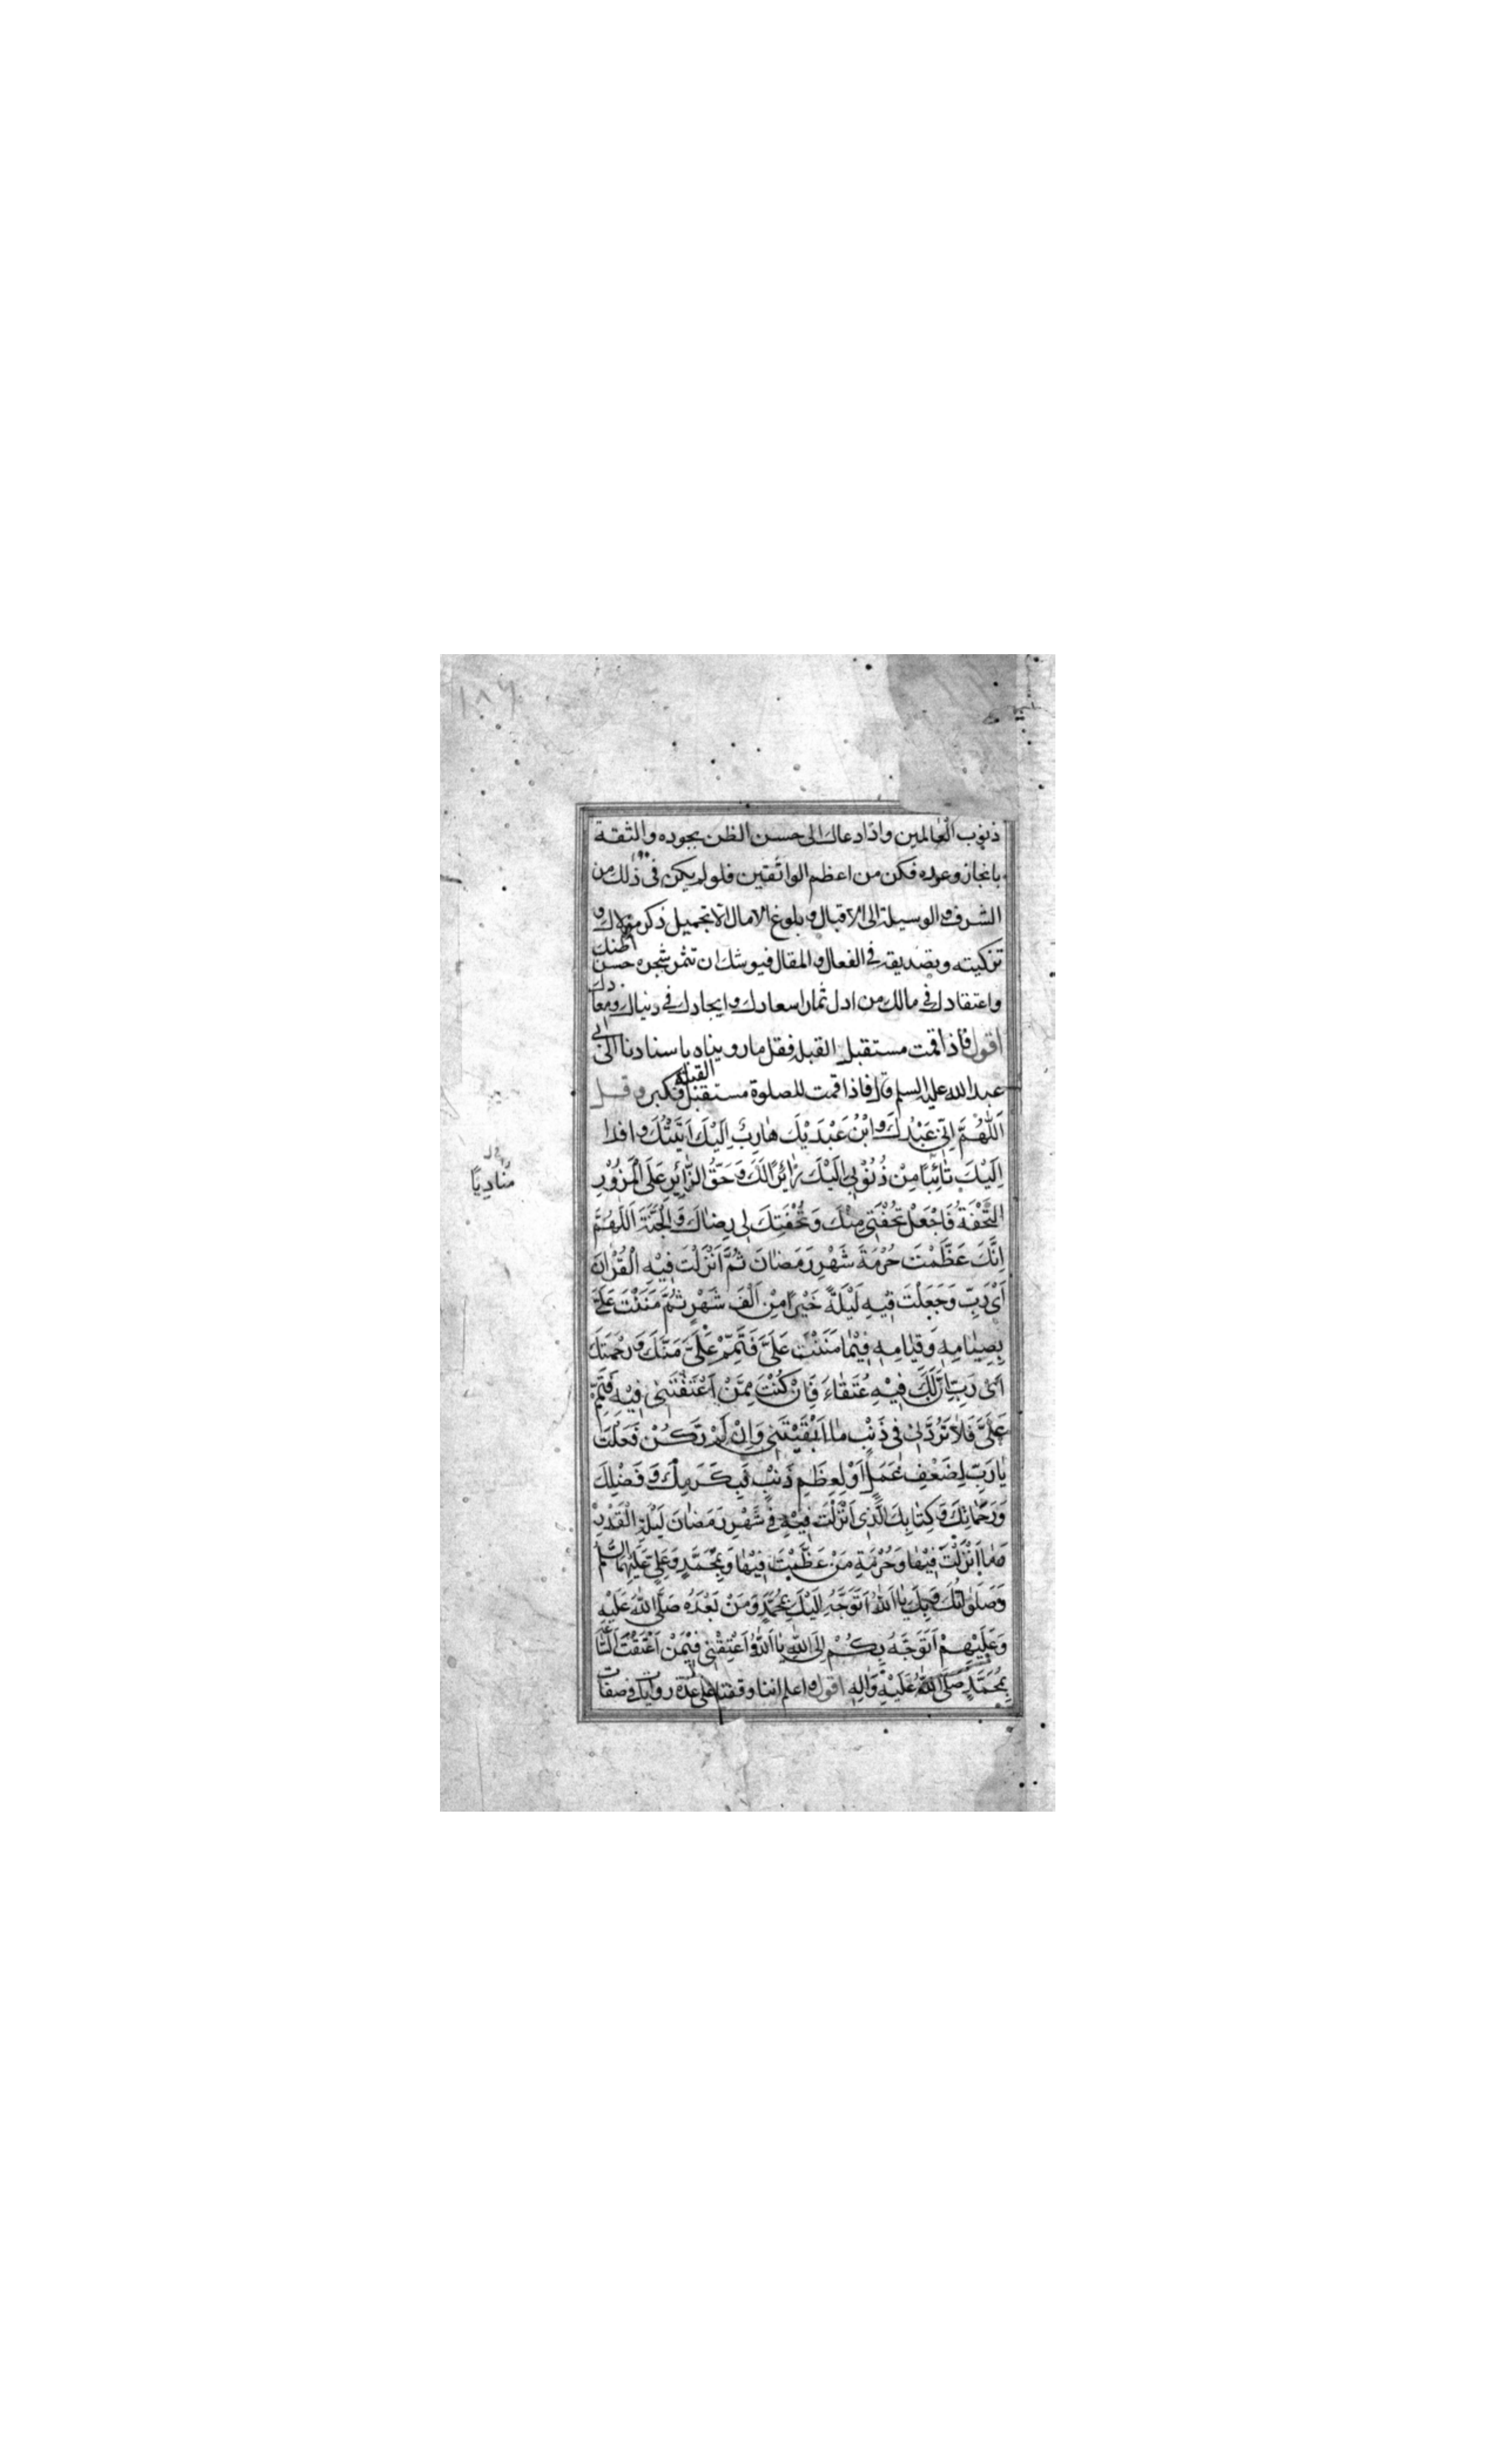 ١٨٩
ذنوب العالمين واذا دعاك الى حسن الظن بجوده والثقة
بانجاز وعوده فكن من اعظم الواثقين فلو لم يكن فى ذلك من
الشرف والوسيلة الى الاقبال وبلوغ الامال الا تجميل ذكر مولاك و
تزكيته وتصديقه فى الفعال والمقال فيوشك ان تثمر شجره حسن ظنك
واعتقادك فى مالك من ادل ثمار اسعادك وايجادك فى دنياك ومعادك
اقول فاذا قمت مستقبل القبلة فقل ما رويناه باسنادنا الى ابى
عبد الله عليه السلم قال فاذا قمت للصلوة مستقبل القبلة فكبر وقل
اَللّٰهُمَّ اِنّى عَبْدُكَ وَابْنُ عَبْدَيْكَ هَارِبٌ اِلَيْكَ اَتَيْتُكَ وافدا
اِلَيْكَ تَائِبًا مِنْ ذُنُوْبى اِلَيْكَ زَائِرًا لَكَ وَحَقُّ الزَّائِرِ عَلَى الْمَزُوْرِ
التُّحْفَةُ فَاجْعَلْ تُحْفَتى مِنْكَ وَتُحْفَتِكَ لى رِضَاكَ وَالْجَنَّةَ اَللّٰهُمَّ
اِنَّكَ عَظَّمْتَ حُرْمَةَ شَهْرِ رَمَضَانَ ثُمَّ اَنْزَلْتَ فِيْهِ الْقُرْآنَ
اَىْ رَبِّ وَجَعَلْتَ فِيْهِ لَيْلَةً خَيْرًا مِنْ اَلْفِ شَهْرٍ ثُمَّ مَنَنْتَ عَلَىَّ
بِصِيَامِهِ وَقِيَامِهِ فِيْمَا مَنَنْتَ عَلَىَّ فَتَمِّمْ عَلَىَّ مَنَّكَ وَرَحْمَتَكَ
اَىْ رَبِّ اِنَّ لَكَ فِيْهِ عُتَقَاءَ فَاِنْ كُنْتُ مِمَّنْ اَعْتَقْتَنى فِيْهِ فَتَمِّمْ
عَلَىَّ فَلَا تَرُدَّنى فى ذَنْبٍ مَا اَبْقَيْتَنى وَاِنْ لَمْ تَكُنْ فَعَلْتَ
يَا رَبِّ لِضَعْفِ عَمَلٍ اَوْ لِعِظَمِ ذَنْبٍ فَبِكَرَمِكَ وَفَضْلِكَ
وَرَحْمَتِكَ وَكِتَابِكَ الَّذى اَنْزَلْتَ فِيْهِ فى شَهْرِ رَمَضَانَ لَيْلَةِ الْقَدْرِ
وَمَا اَنْزَلْتَ فِيْهَا وَحُرْمَةِ مَنْ عَظَّمْتَ فِيْهَا وَبِمُحَمَّدٍ وَعَلِىٍّ عَلَيْهِمَا السَّلم
وَصَلَوَاتُكَ وَبِكَ يَا اَللّٰهُ اَتَوَجَّهُ اِلَيْكَ بِمُحَمَّدٍ وَمَنْ بَعْدَهُ صَلَّى اللّٰهُ عَلَيْهِ
وَعَلَيْهِمْ اَتَوَجَّهُ بِكُمْ اِلَى اللّٰهِ يَا اَللّٰهُ اَعْتِقْنى فِيْمَنْ اَعْتَقْتَ السَّاعَةَ
بِمُحَمَّدٍ صَلَّى اللّٰهُ عَلَيْهِ وَآلِهِ اقول واعلم اننا وقفنا على عدة روايات فى صفات
مناديًا